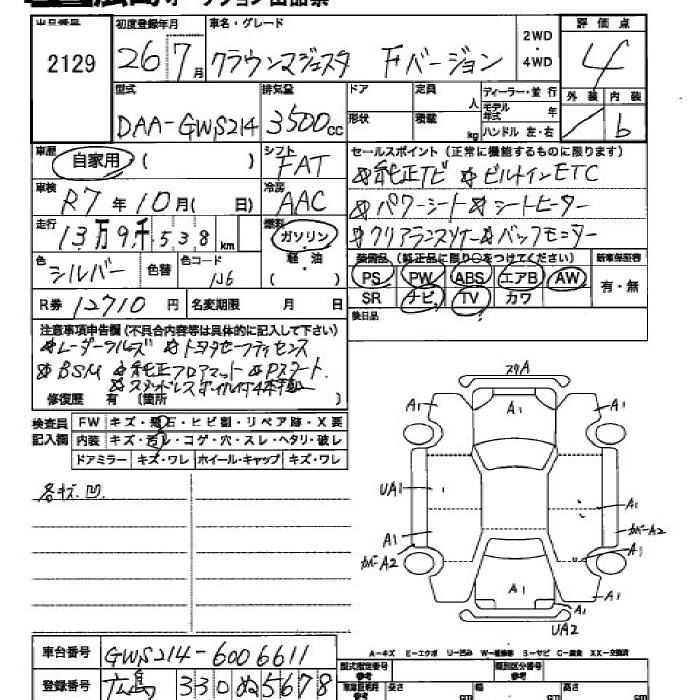 広島オークション出品票
出品番号 初度登録年月 車名・グレード 2WD・4WD 評価点
2129 26 7月 クラウンマジェスタ Fバージョン 4
型式 排気量 ドア 定員 人 ディーラー・並行 外装 内装
DAA-GWS214 3500cc 形状 積載 kg モデル年式 年 ハンドル 左・右 b
車歴 自家用 ( ) シフト FAT セールスポイント(正常に機能するものに限ります)
車検 R7年10月( 日) 冷房 AAC ☆純正TV ☆ビルトインETC
☆パワーシート ☆シートヒーター
走行 13万9千538km 燃料 ガソリン・軽油 ( ) ☆クリアランスソナー ☆バックモニター
色 シルバー 色替 色コード 1J6 装備品(純正品に限り○をつけてください) 新車保証書
PS PW ABS エアB AW 有・無
R券 12710円 名変期限 月 日 SR ナビ TV カワ
後日品
注意事項申告欄(不具合内容等は具体的に記入して下さい)
☆レーダークルーズ ☆トヨタセーフティセンス
☆BSM ☆純正フロアマット ☆Pスタート
☆スタッドレスホイル付4本積
修復歴 有 (箇所 )
検査員記入欄 FW キズ・飛石・ヒビ割・リペア跡・X要
内装 キズ・汚レ・コゲ・穴・スレ・ヘタリ・破レ
ドアミラー キズ・ワレ ホイール・キャップ キズ・ワレ
各キズ、凹
スリA
A1 A1 A1
UA1
A1
カバーA2
A1 A1
カバーA2
A1 A1
A1
UA2
A-キズ E-エクボ U-凹み W-補修跡 S-サビ C-腐食 XX-交換済
車台番号 GWS214-6006611
登録番号 広島 330 ぬ 5678
型式指定番号 参考 類別区分番号 参考
長さ cm 幅 cm 高さ cm